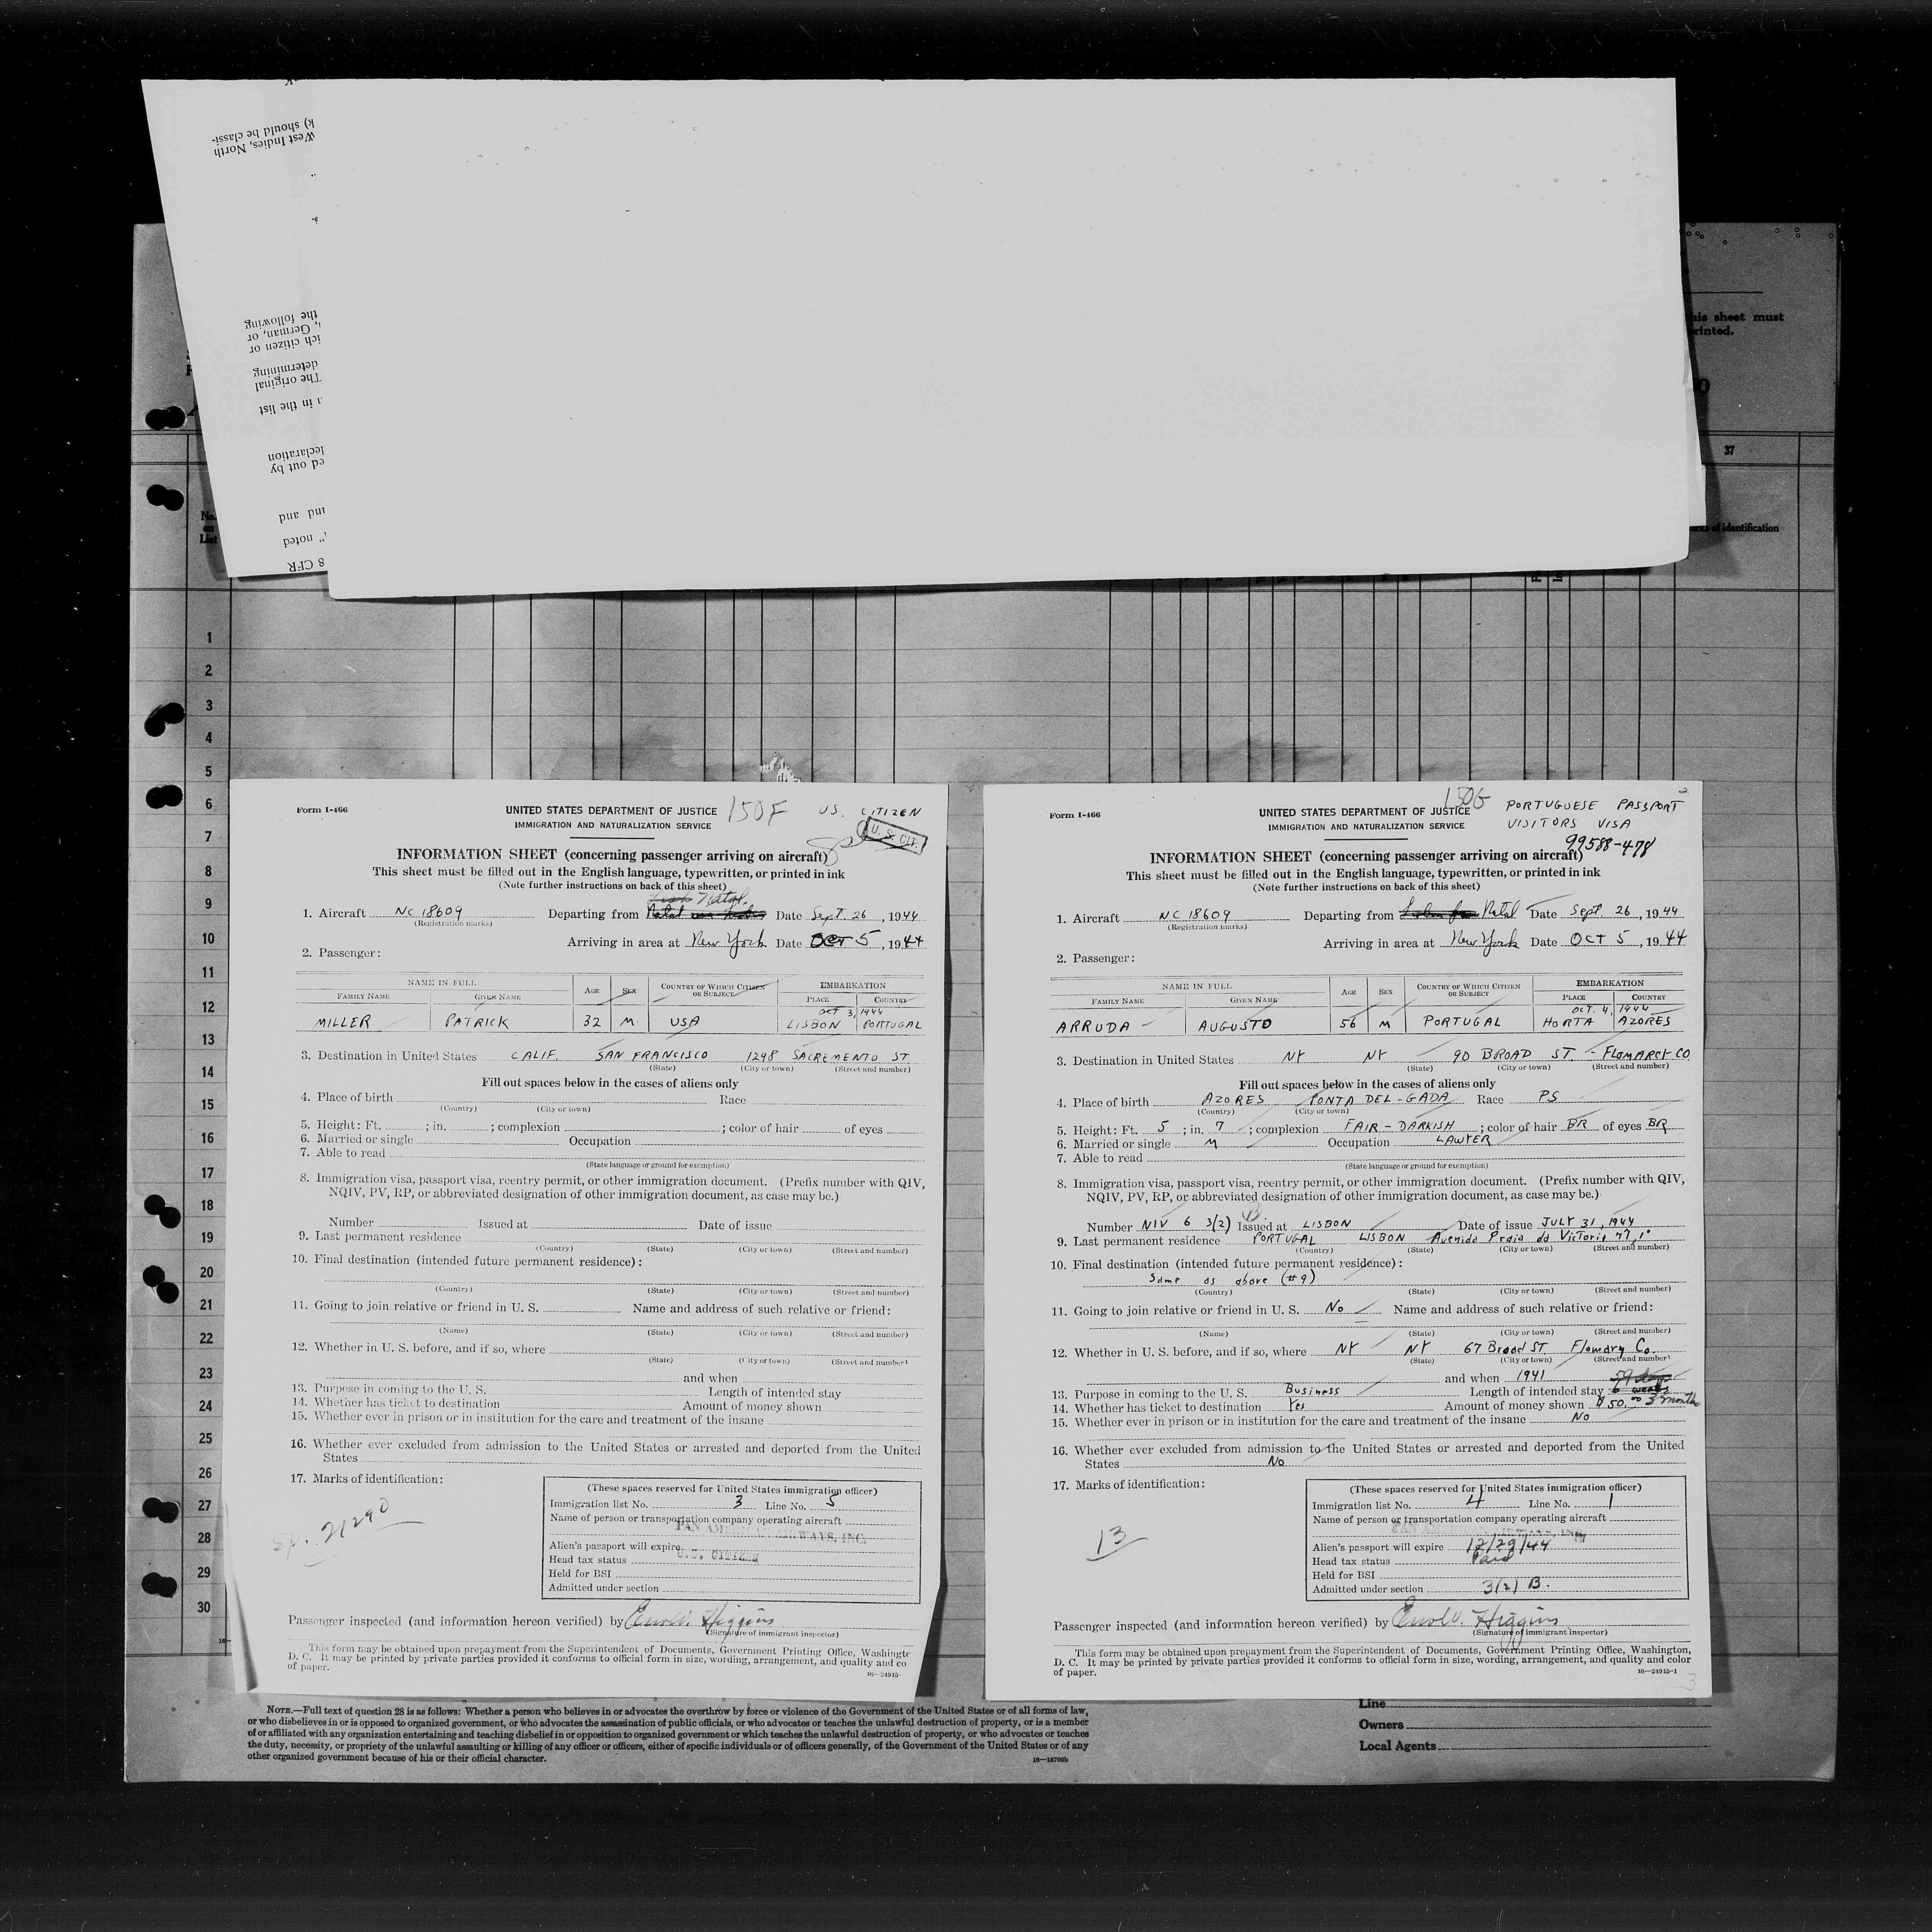 k) should be classi-
West Indies, North
the following
, German, or
ich citizen or
determining
The original
n in the list
ed out by
and
" noted
8 CFR
his sheet must
rinted.
37
No.
on
List
of identification
1
2
3
4
5
6
7
8
9
10
11
12
13
14
15
16
17
18
19
20
21
22
23
24
25
26
27
28
29
30
Form I-466
UNITED STATES DEPARTMENT OF JUSTICE 150F US. CITIZEN
IMMIGRATION AND NATURALIZATION SERVICE
U. S. CIT.
INFORMATION SHEET (concerning passenger arriving on aircraft)
This sheet must be filled out in the English language, typewritten, or printed in ink
(Note further instructions on back of this sheet)
Natal
1. Aircraft NC 18609 Departing from Date Sept. 26, 1944
(Registration marks)
Arriving in area at New York Date OCT 5, 1944
2. Passenger:
NAME IN FULL AGE SEX COUNTRY OF WHICH CITIZEN OR SUBJECT EMBARKATION
FAMILY NAME GIVEN NAME PLACE COUNTRY
OCT 3, 1944
MILLER PATRICK 32 M. USA LISBON PORTUGAL
3. Destination in United States CALIF. SAN FRANCISCO 1298 SACREMENTO ST.
(State) (City or town) (Street and number)
Fill out spaces below in the cases of aliens only
4. Place of birth Race
(Country) (City or town)
5. Height: Ft. ; in. ; complexion ; color of hair of eyes
6. Married or single Occupation
7. Able to read
(State language or ground for exemption)
8. Immigration visa, passport visa, reentry permit, or other immigration document. (Prefix number with QIV,
NQIV, PV, RP, or abbreviated designation of other immigration document, as case may be.)
Number Issued at Date of issue
9. Last permanent residence
(Country) (State) (City or town) (Street and number)
10. Final destination (intended future permanent residence):
(Country) (State) (City or town) (Street and number)
11. Going to join relative or friend in U. S. Name and address of such relative or friend:
(Name) (State) (City or town) (Street and number)
12. Whether in U. S. before, and if so, where
(State) (City or town) (Street and number)
and when
13. Purpose in coming to the U. S. Length of intended stay
14. Whether has ticket to destination Amount of money shown
15. Whether ever in prison or in institution for the care and treatment of the insane
16. Whether ever excluded from admission to the United States or arrested and deported from the United
States
17. Marks of identification:
21290
(These spaces reserved for United States immigration officer)
Immigration list No. 3 Line No. 5
Name of person or transportation company operating aircraft
PAN AMERICAN AIRWAYS, INC.
Alien's passport will expire
U.S. CITIZEN
Head tax status
Held for BSI
Admitted under section
Passenger inspected (and information hereon verified) by Errol W. Higgins
(Signature of immigrant inspector)
This form may be obtained upon prepayment from the Superintendent of Documents, Government Printing Office, Washingto
D. C. It may be printed by private parties provided it conforms to official form in size, wording, arrangement, and quality and co
of paper.
16—24915-
Form I-466
UNITED STATES DEPARTMENT OF JUSTICE 150G PORTUGUESE PASSPORT
IMMIGRATION AND NATURALIZATION SERVICE VISITORS VISA
99588-478
INFORMATION SHEET (concerning passenger arriving on aircraft)
This sheet must be filled out in the English language, typewritten, or printed in ink
(Note further instructions on back of this sheet)
1. Aircraft NC 18609 Departing from Natal Date Sept. 26, 1944
(Registration marks)
Arriving in area at New York Date OCT 5, 1944
2. Passenger:
NAME IN FULL AGE SEX COUNTRY OF WHICH CITIZEN OR SUBJECT EMBARKATION
FAMILY NAME GIVEN NAME PLACE COUNTRY
OCT. 4, 1944
ARRUDA AUGUSTO 56 M PORTUGAL HORTA AZORES
3. Destination in United States NY NY 90 BROAD ST. - FLOMARCY CO.
(State) (City or town) (Street and number)
Fill out spaces below in the cases of aliens only
4. Place of birth AZORES PONTA DEL-GADA Race PS
(Country) (City or town)
5. Height: Ft. 5 ; in. 7 ; complexion FAIR - DARKISH ; color of hair BR of eyes BR
6. Married or single M Occupation LAWYER
7. Able to read
(State language or ground for exemption)
8. Immigration visa, passport visa, reentry permit, or other immigration document. (Prefix number with QIV,
NQIV, PV, RP, or abbreviated designation of other immigration document, as case may be.)
Number NIV 6 3(2) Issued at LISBON Date of issue JULY 31, 1944
9. Last permanent residence PORTUGAL LISBON Avenida Praia da Victoria 77, 1°
(Country) (State) (City or town) (Street and number)
10. Final destination (intended future permanent residence):
Same as above (#9)
(Country) (State) (City or town) (Street and number)
11. Going to join relative or friend in U. S. No Name and address of such relative or friend:
(Name) (State) (City or town) (Street and number)
12. Whether in U. S. before, and if so, where NY NY 67 Broad ST. Flomary Co.
(State) (City or town) (Street and number)
and when 1941
13. Purpose in coming to the U. S. Business Length of intended stay 6 weeks
14. Whether has ticket to destination Yes Amount of money shown $50.00 3 months
15. Whether ever in prison or in institution for the care and treatment of the insane No
16. Whether ever excluded from admission to the United States or arrested and deported from the United
States No
17. Marks of identification:
13
(These spaces reserved for United States immigration officer)
Immigration list No. 4 Line No. 1
Name of person or transportation company operating aircraft
PAN AMERICAN AIRWAYS, INC.
Alien's passport will expire 12/29/44
Head tax status Paid
Held for BSI
Admitted under section 3(2) B.
Passenger inspected (and information hereon verified) by Errol W. Higgins
(Signature of immigrant inspector)
This form may be obtained upon prepayment from the Superintendent of Documents, Government Printing Office, Washington,
D. C. It may be printed by private parties provided it conforms to official form in size, wording, arrangement, and quality and color
of paper.
16—24915-1
3
NOTE.—Full text of question 28 is as follows: Whether a person who believes in or advocates the overthrow by force or violence of the Government of the United States or of all forms of law,
or who disbelieves in or is opposed to organized government, or who advocates the assassination of public officials, or who advocates or teaches the unlawful destruction of property, or is a member
of or affiliated with any organization entertaining and teaching disbelief in or opposition to organized government or which teaches the unlawful destruction of property, or who advocates or teaches
the duty, necessity, or propriety of the unlawful assaulting or killing of any officer or officers, either of specific individuals or of officers generally, of the Government of the United States or of any
other organized government because of his or their official character.
16—18700b
Line
Owners
Local Agents